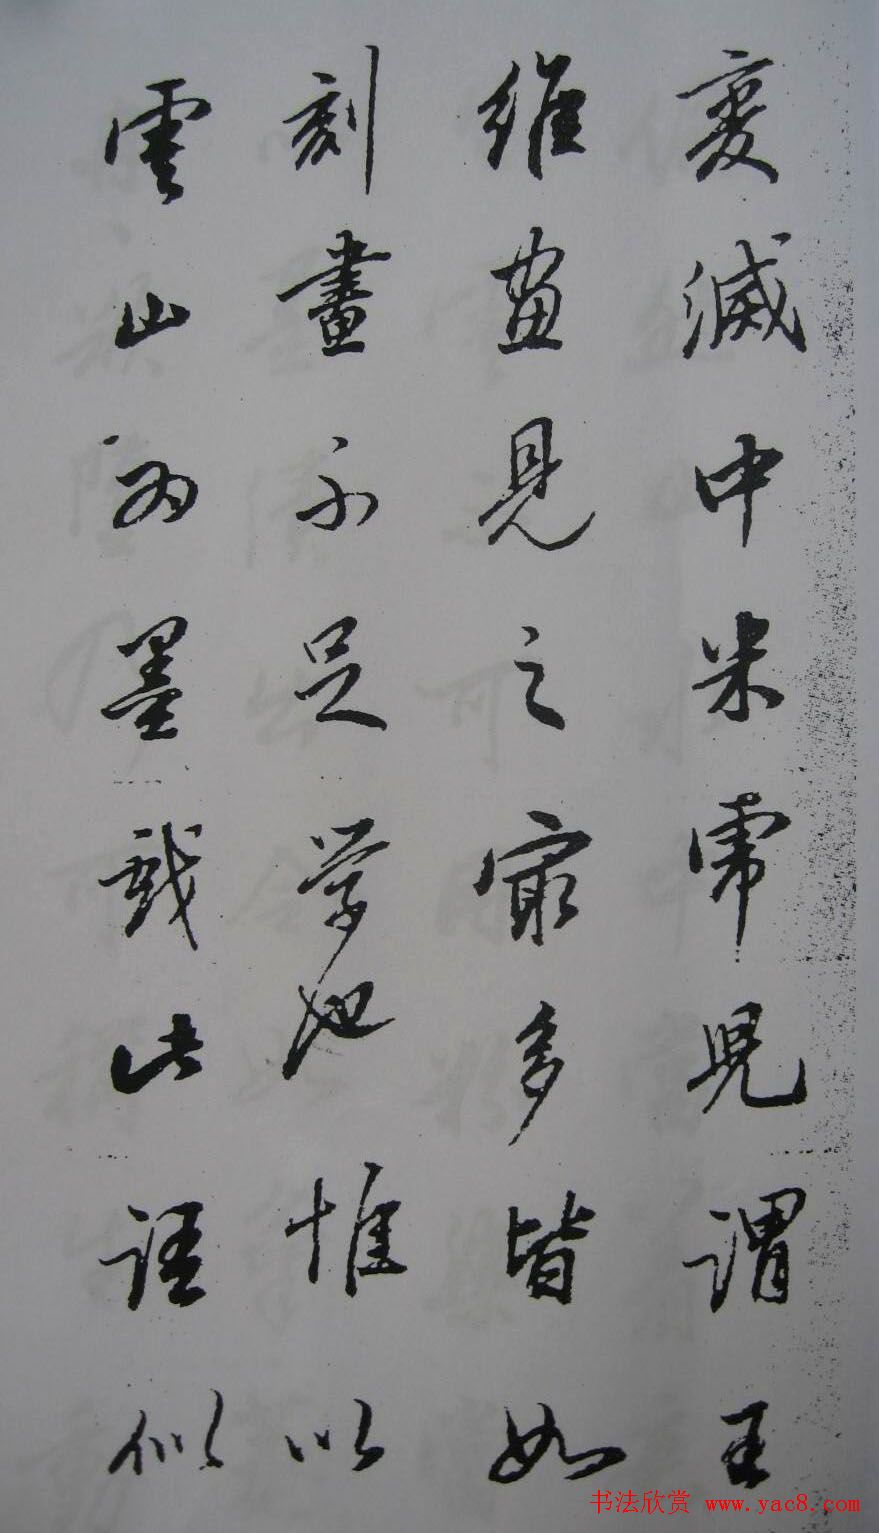 變滅中米虎兒謂王
維畫見之最多皆如
刻畫不足學也惟以
雲山為墨戲此語似
书法欣赏 www.yac8.com